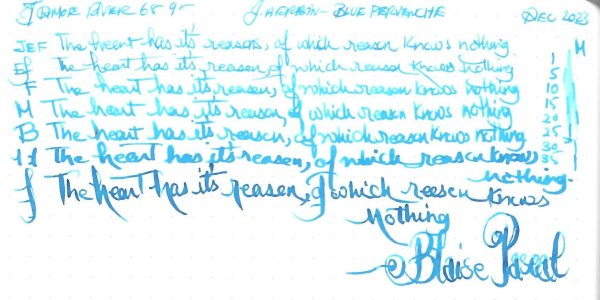 Tomoe River 68 gr J. Herbin - Blue Pervenche Dec 2023
JEF The heart has it's reasons, of which reason knows nothing. M
EF The heart has it's reason, of which reason knows nothing 1
F The heart has it's reason, of which reason knows nothing 5
M The heart has it's reason, of which reason knows nothing 10
B The heart has it's reason, of which reason knows nothing 25
1.1 The heart has it's reason, of which reason knows 30
nothing. 35
f The heart has it's reason, of which reason knows
nothing
Blaise Pascal